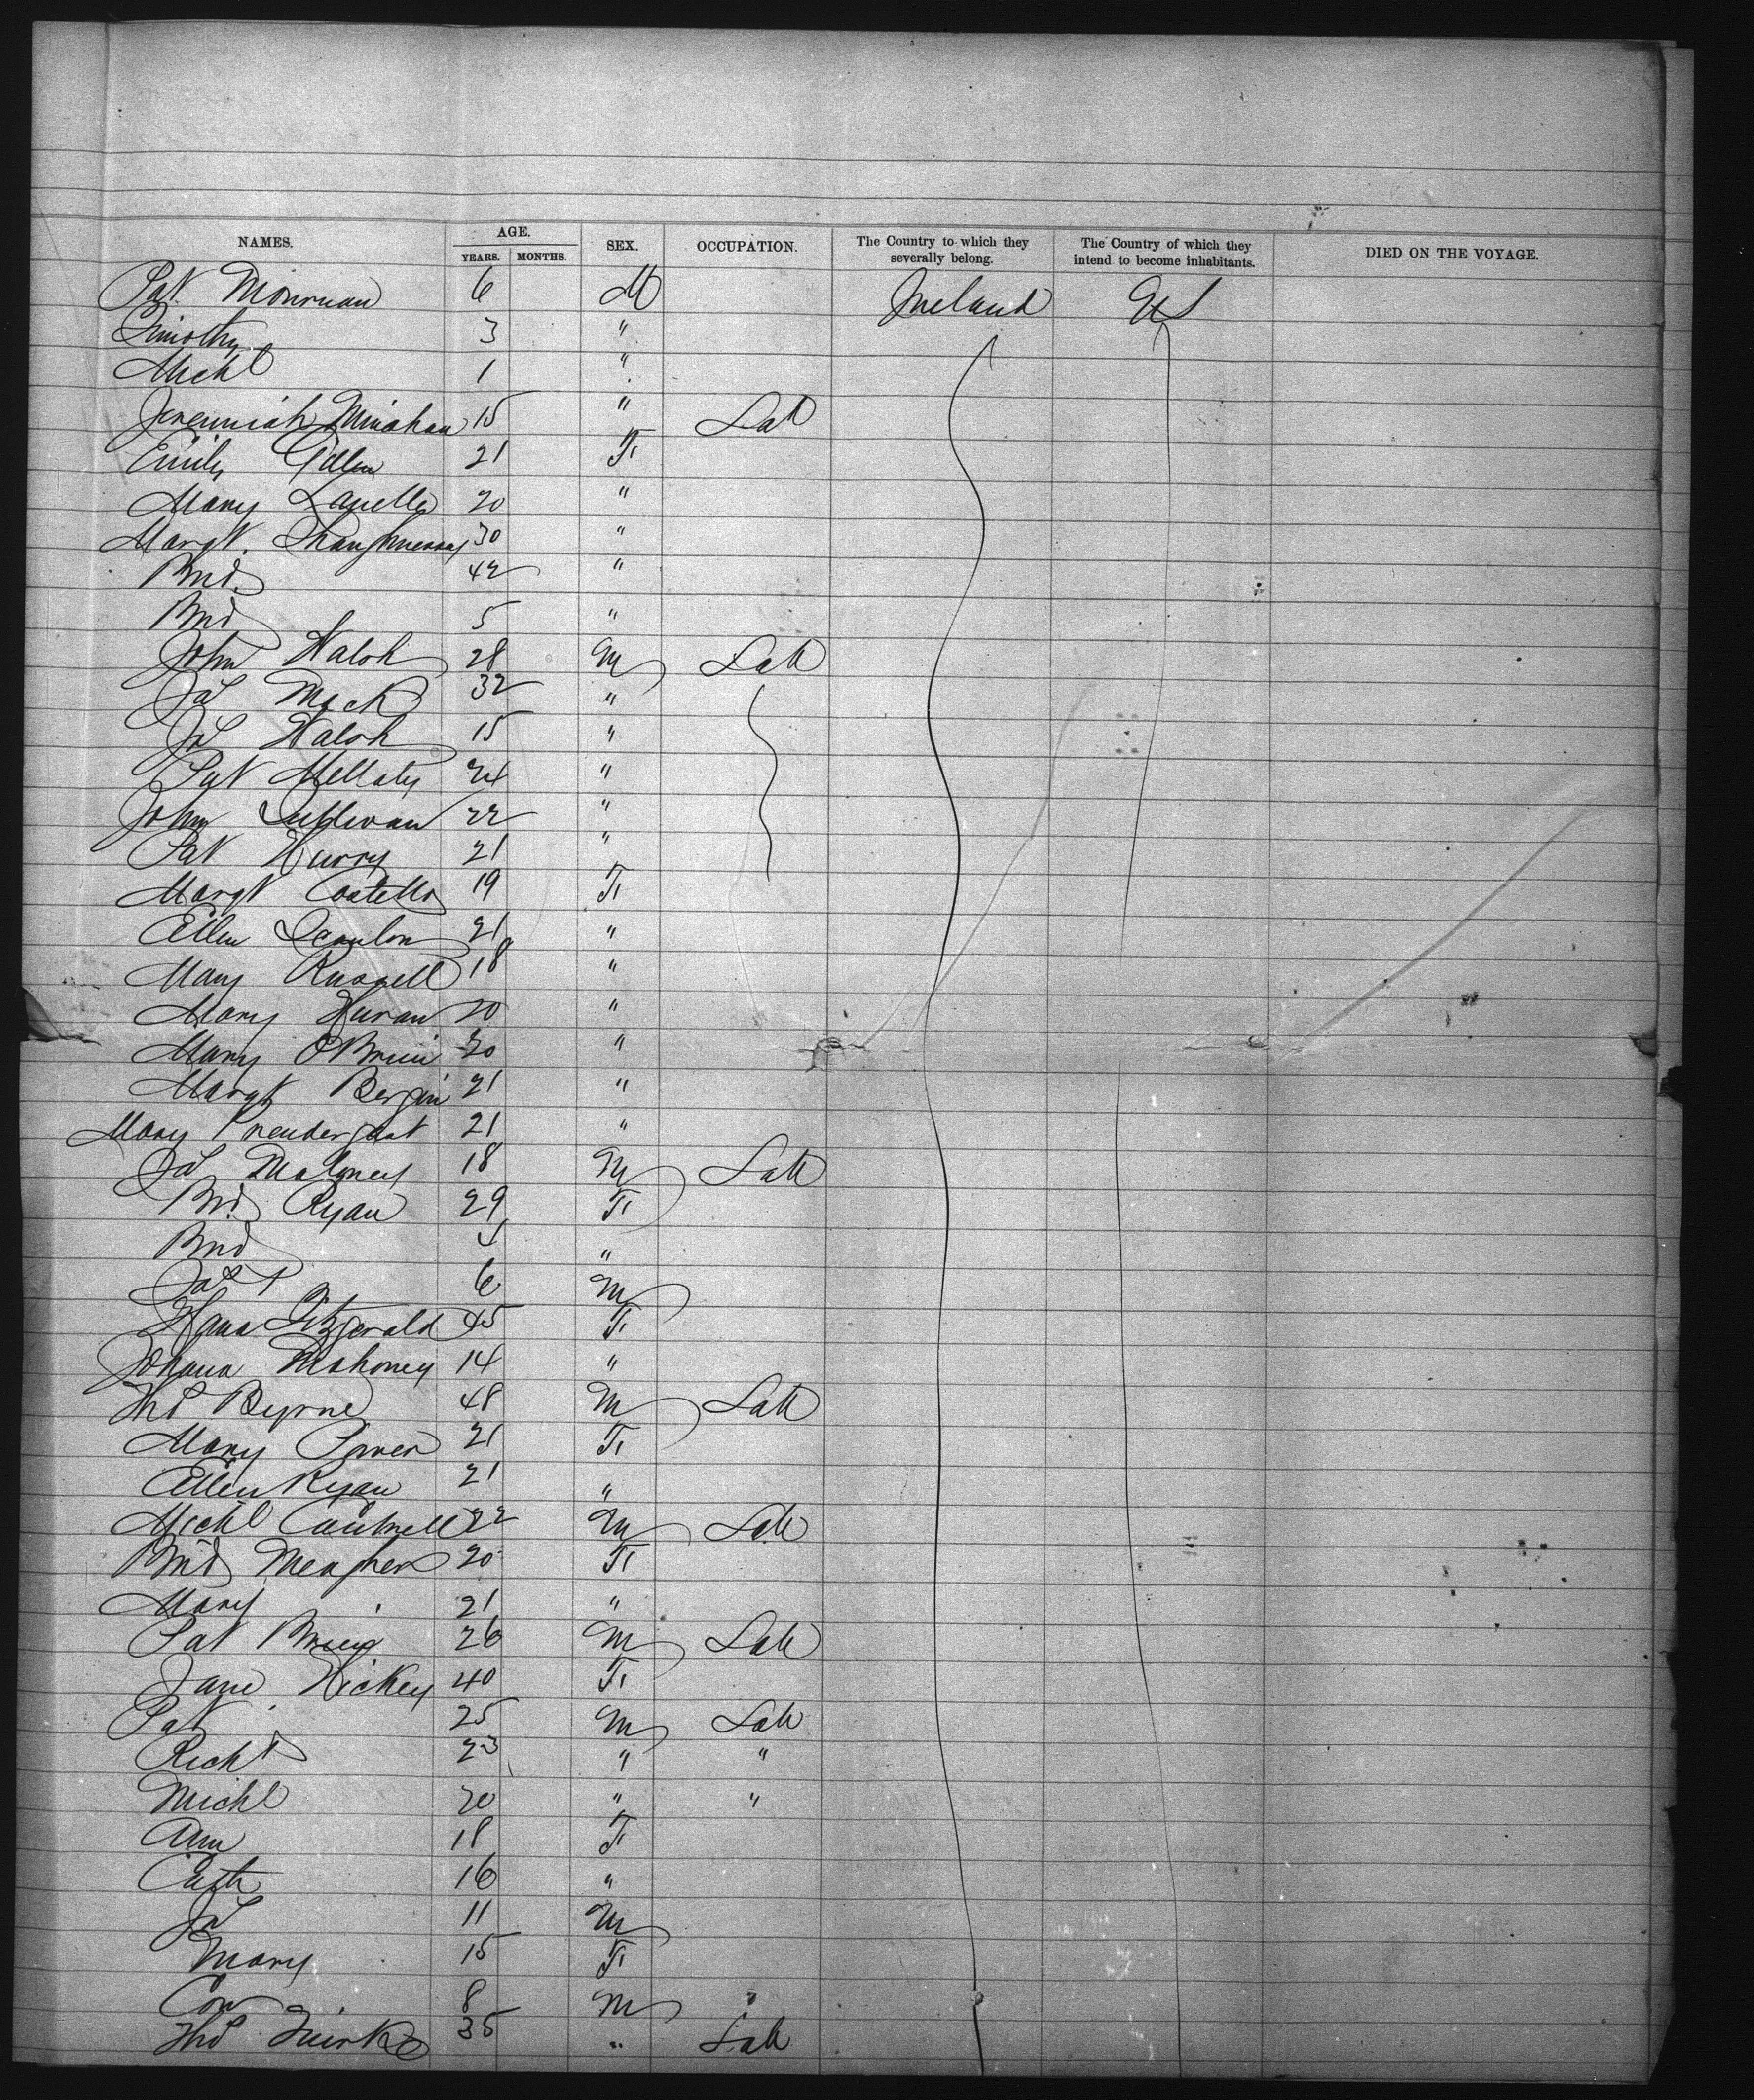 NAMES. AGE. SEX. OCCUPATION. The Country to which they severally belong. The Country of which they intend to become inhabitants. DIED ON THE VOYAGE.
YEARS. MONTHS.
Pat 6 M Ireland US
Timothy 3 "
Michl 1 "
Jeremiah Minahan 15 " Lab
Emily 21 F
Mary Lavelle 20 "
Margt. Shaughnessy 30 "
Brid 42 "
Brid 5 "
John Walsh 28 M Lab
Jas Mack 32 "
Jas Walsh 15 "
Pat 24 "
John Sullivan 22 "
Pat Hurry 21 "
Margt Costello 19 F
Ellen Scanlon 21 "
Mary Russell 18 "
Mary 20 "
Mary O'Brien 20 "
Margt Bergin 21 "
Mary Prendergast 21 "
Jas Maloney 18 M Lab
Brd Ryan 29 F
Brid 4 "
Jas 6 M
Hana Fitzgerald 45 F
Johana Mahoney 14 "
Ths Byrne 48 M Lab
Mary Power 21 F
Ellen Ryan 21 "
Michl Cantwell 22 M Lab
Brid Meagher 20 F
Mary 21 "
Pat 26 M Lab
Jane Hickey 40 F
Pat 25 M Lab
Richd 23 " "
Michl 20 " "
Ann 18 F
Cath 16 "
Jas 11 M
Mary 15 F
Con 8 M
Ths Quirke 35 " Lab